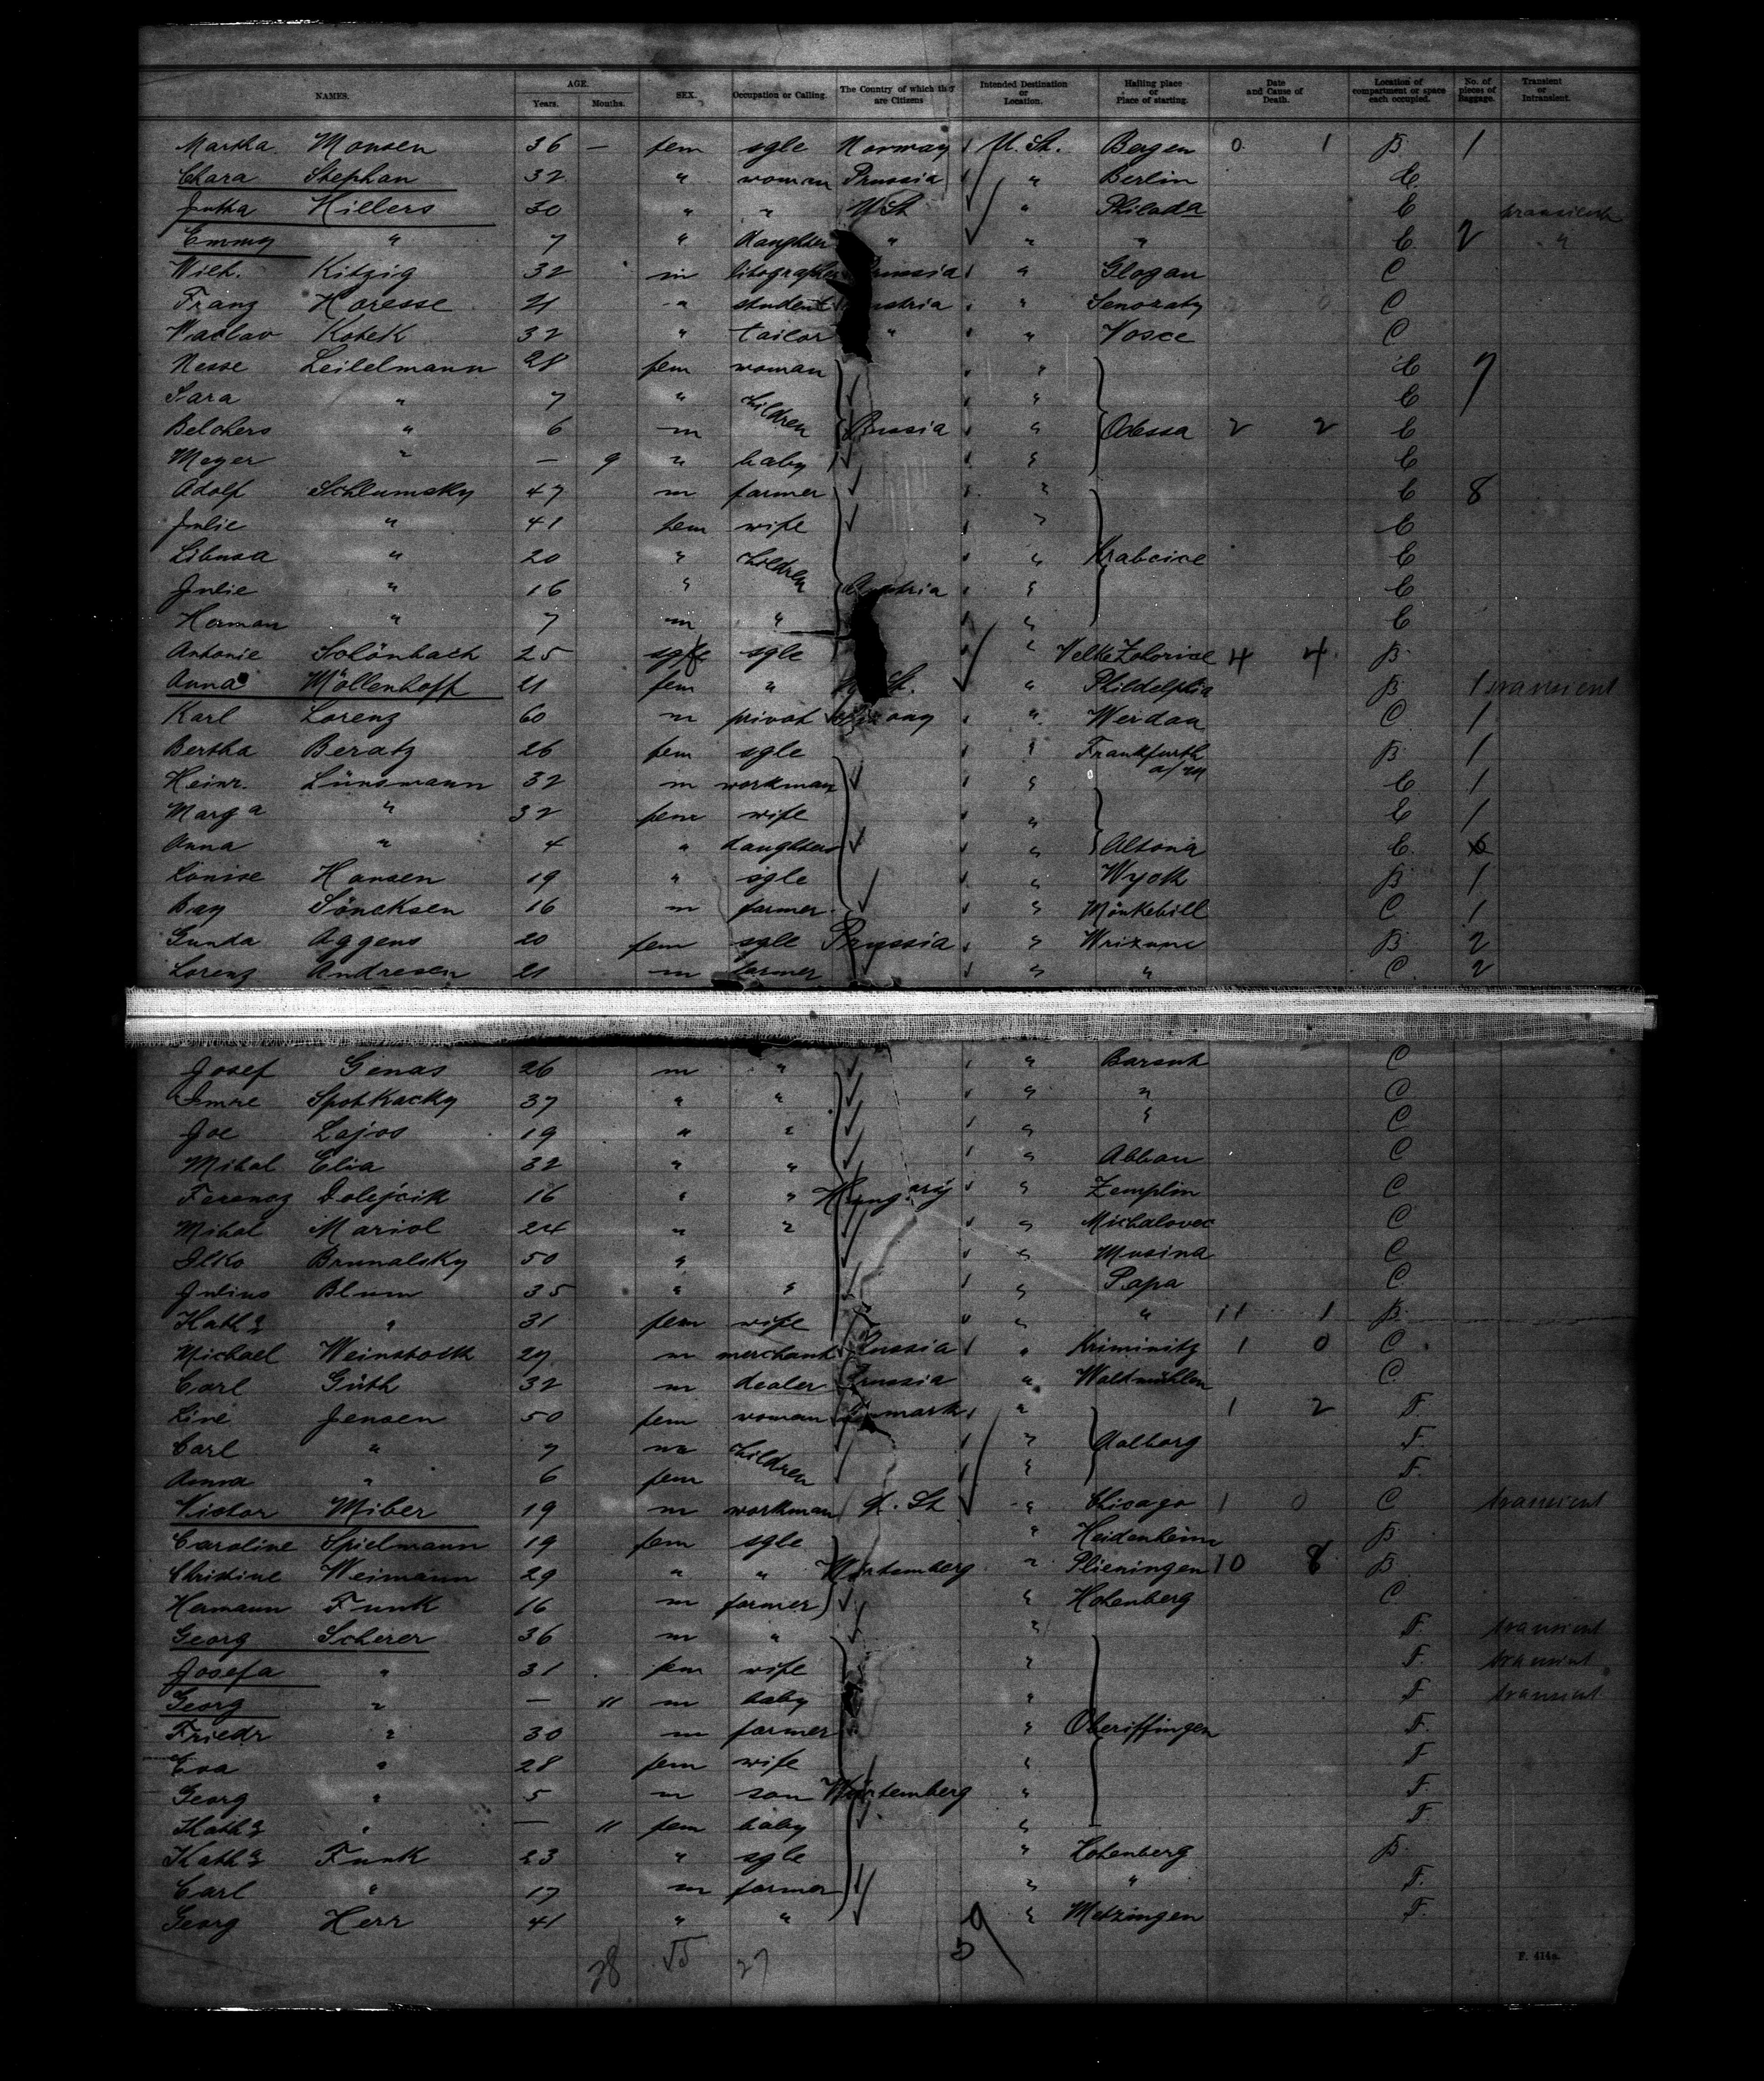 NAMES. AGE. Years. Months. SEX. Occupation or Calling. The Country of which they are Citizens Intended Destination or Location. Hailing place or Place of starting. Date and Cause of Death. Location of compartment or space each occupied. No. of pieces of Baggage. Transient or Intransient.
Martha Monsen 36 — fem sgle Norway U. St. Bergen 0 1 B 1
Clara Stephan 32 " woman Prussia " Berlin C
Jutha Hillers 30 " " U St " Philada C transient
Emmy " 7 " daughter " " " C 2 "
Wilh. Kitzig 32 m litographer Prussia " Glogau C
Franz Horesse 21 " student Austria " Senozaty C
Waclav Kotek 32 " tailor " " Vosce C
Nesse Leilelmann 28 fem woman " C 7
Sara " 7 " children " C
Belchers " 6 m Russia " Odessa 2 2 C
Meyer " — 9 " baby " C
Adolf Schlumsky 47 m farmer " C 8
Julie " 41 fem wife " C
Libusa " 20 " children " Krabcice C
Julie " 16 " Austria " C
Herman " 7 m " " C
Antonie Schönbach 25 sgle " Velke Zohorice 4 4 B
Anna Möllenhoff 21 fem " St. " Phildelphia B 1 transient
Karl Lorenz 60 m privat " Werdau C 1
Bertha Beratz 26 fem sgle " Frankfurth a/M B 1
Heinr. Lünsmann 32 m workman " C 1
Marga " 32 fem wife " C 1
Anna " 4 " daughter " Altona C
Louise Hansen 19 " sgle " Wyck B 1
Bay Söncksen 16 m farmer " Mönkebüll C 1
Gunda Aggens 20 fem sgle Prussia " Wrixume B 2
Lorenz Andresen 21 m farmer " " C 2
Josef Genas 26 m " " C
Imre Spotkacky 37 " " " " C
Joe Lajos 19 " " " " C
Mihal Elia 32 " " " Abbau C
Ferencz Dolejcik 16 " " Hungary " Zemplin C
Mihal Mariol 24 " " " Michalovec C
Ilko Brunalsky 50 " " Musina C
Julius Blum 35 " " " Papa C
Kath " 31 fem wife " " 11 1 B
Michael Weinstock 29 m merchant Russia " Kriminitz 1 0 C
Carl Güth 32 m dealer Prussia " Waldmühlen C
Line Jensen 50 fem woman Denmark " 1 2 F.
Carl " 7 m children " Aalborg F.
Anna " 6 fem " F.
Victor Miber 19 m workman U. St " Chicago 1 0 C transient
Caroline Spielmann 19 fem sgle " Heidenheim B
Christine Weimann 29 " " Wurtemberg " Plieningen 10 8 B
Hermann Funk 16 m farmer " Hohenberg C
Georg Scherer 36 m " " F. transient
Josefa " 31 fem wife " F. transient
Georg " — 11 m baby " F transient
Friedr " 30 m farmer " Oberiffingen F.
Eva " 28 fem wife " F
Georg " 5 m son Würtemberg " F.
Kath " — 11 fem baby " F.
Kath Funk 23 " sgle " Hohenberg B.
Carl " 17 m farmer " " F.
Georg Herr 41 " " " Metzingen F.
28 27
F. 414a.